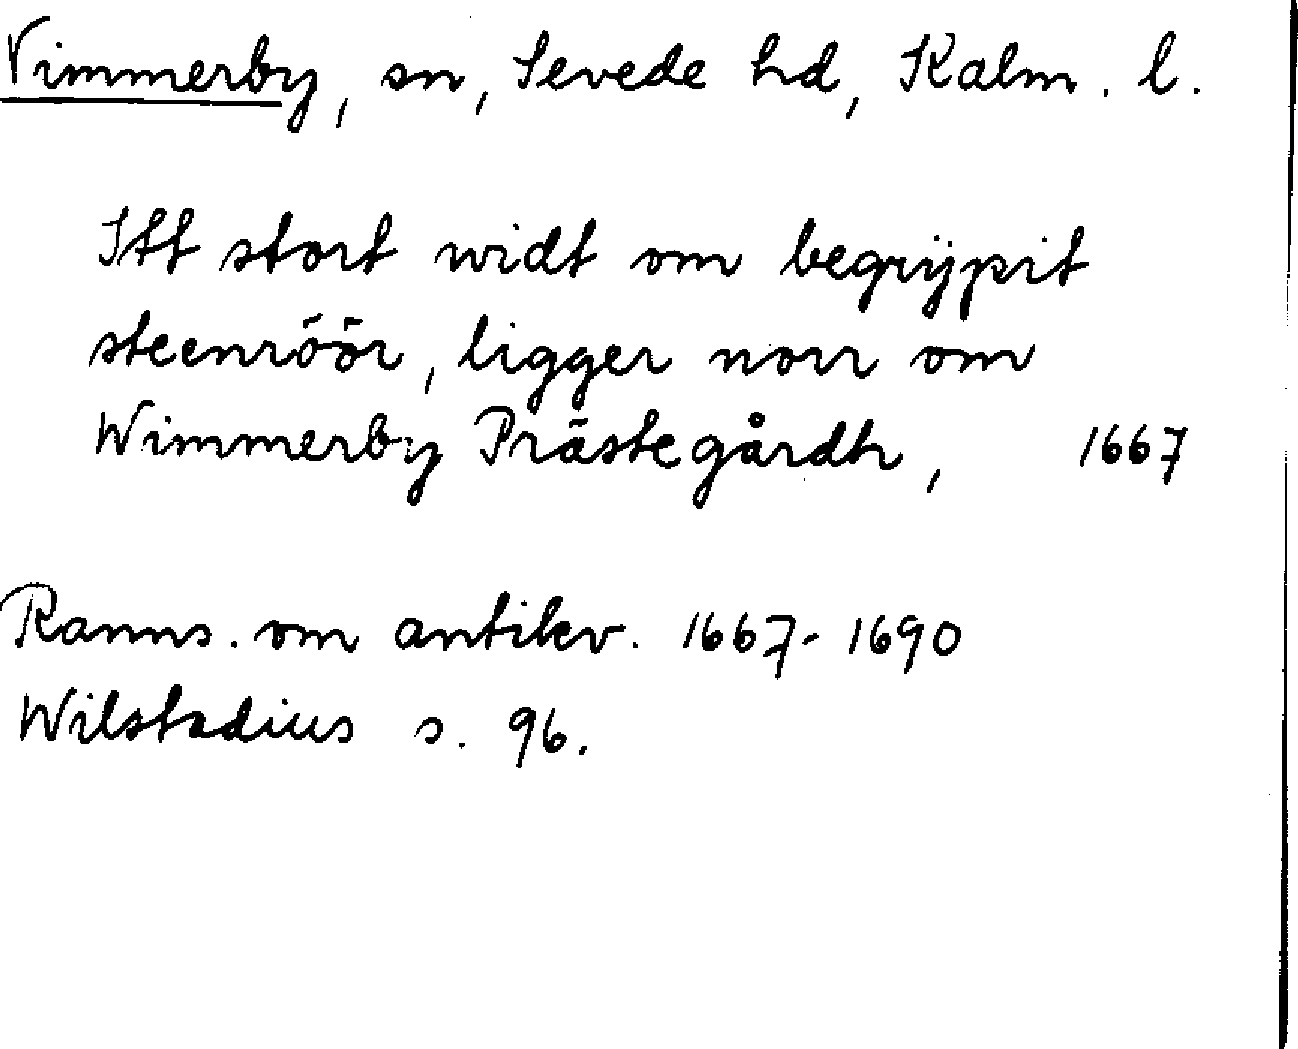 Vimmerby, sn, Sevede hd, Kalm. l.
Itt stort widt om begrijpit
steenröör, ligger norr om
Wimmerby Prästegårdh, 1667
Ranns. om antikv. 1667-1690
Wilstadius s. 96.